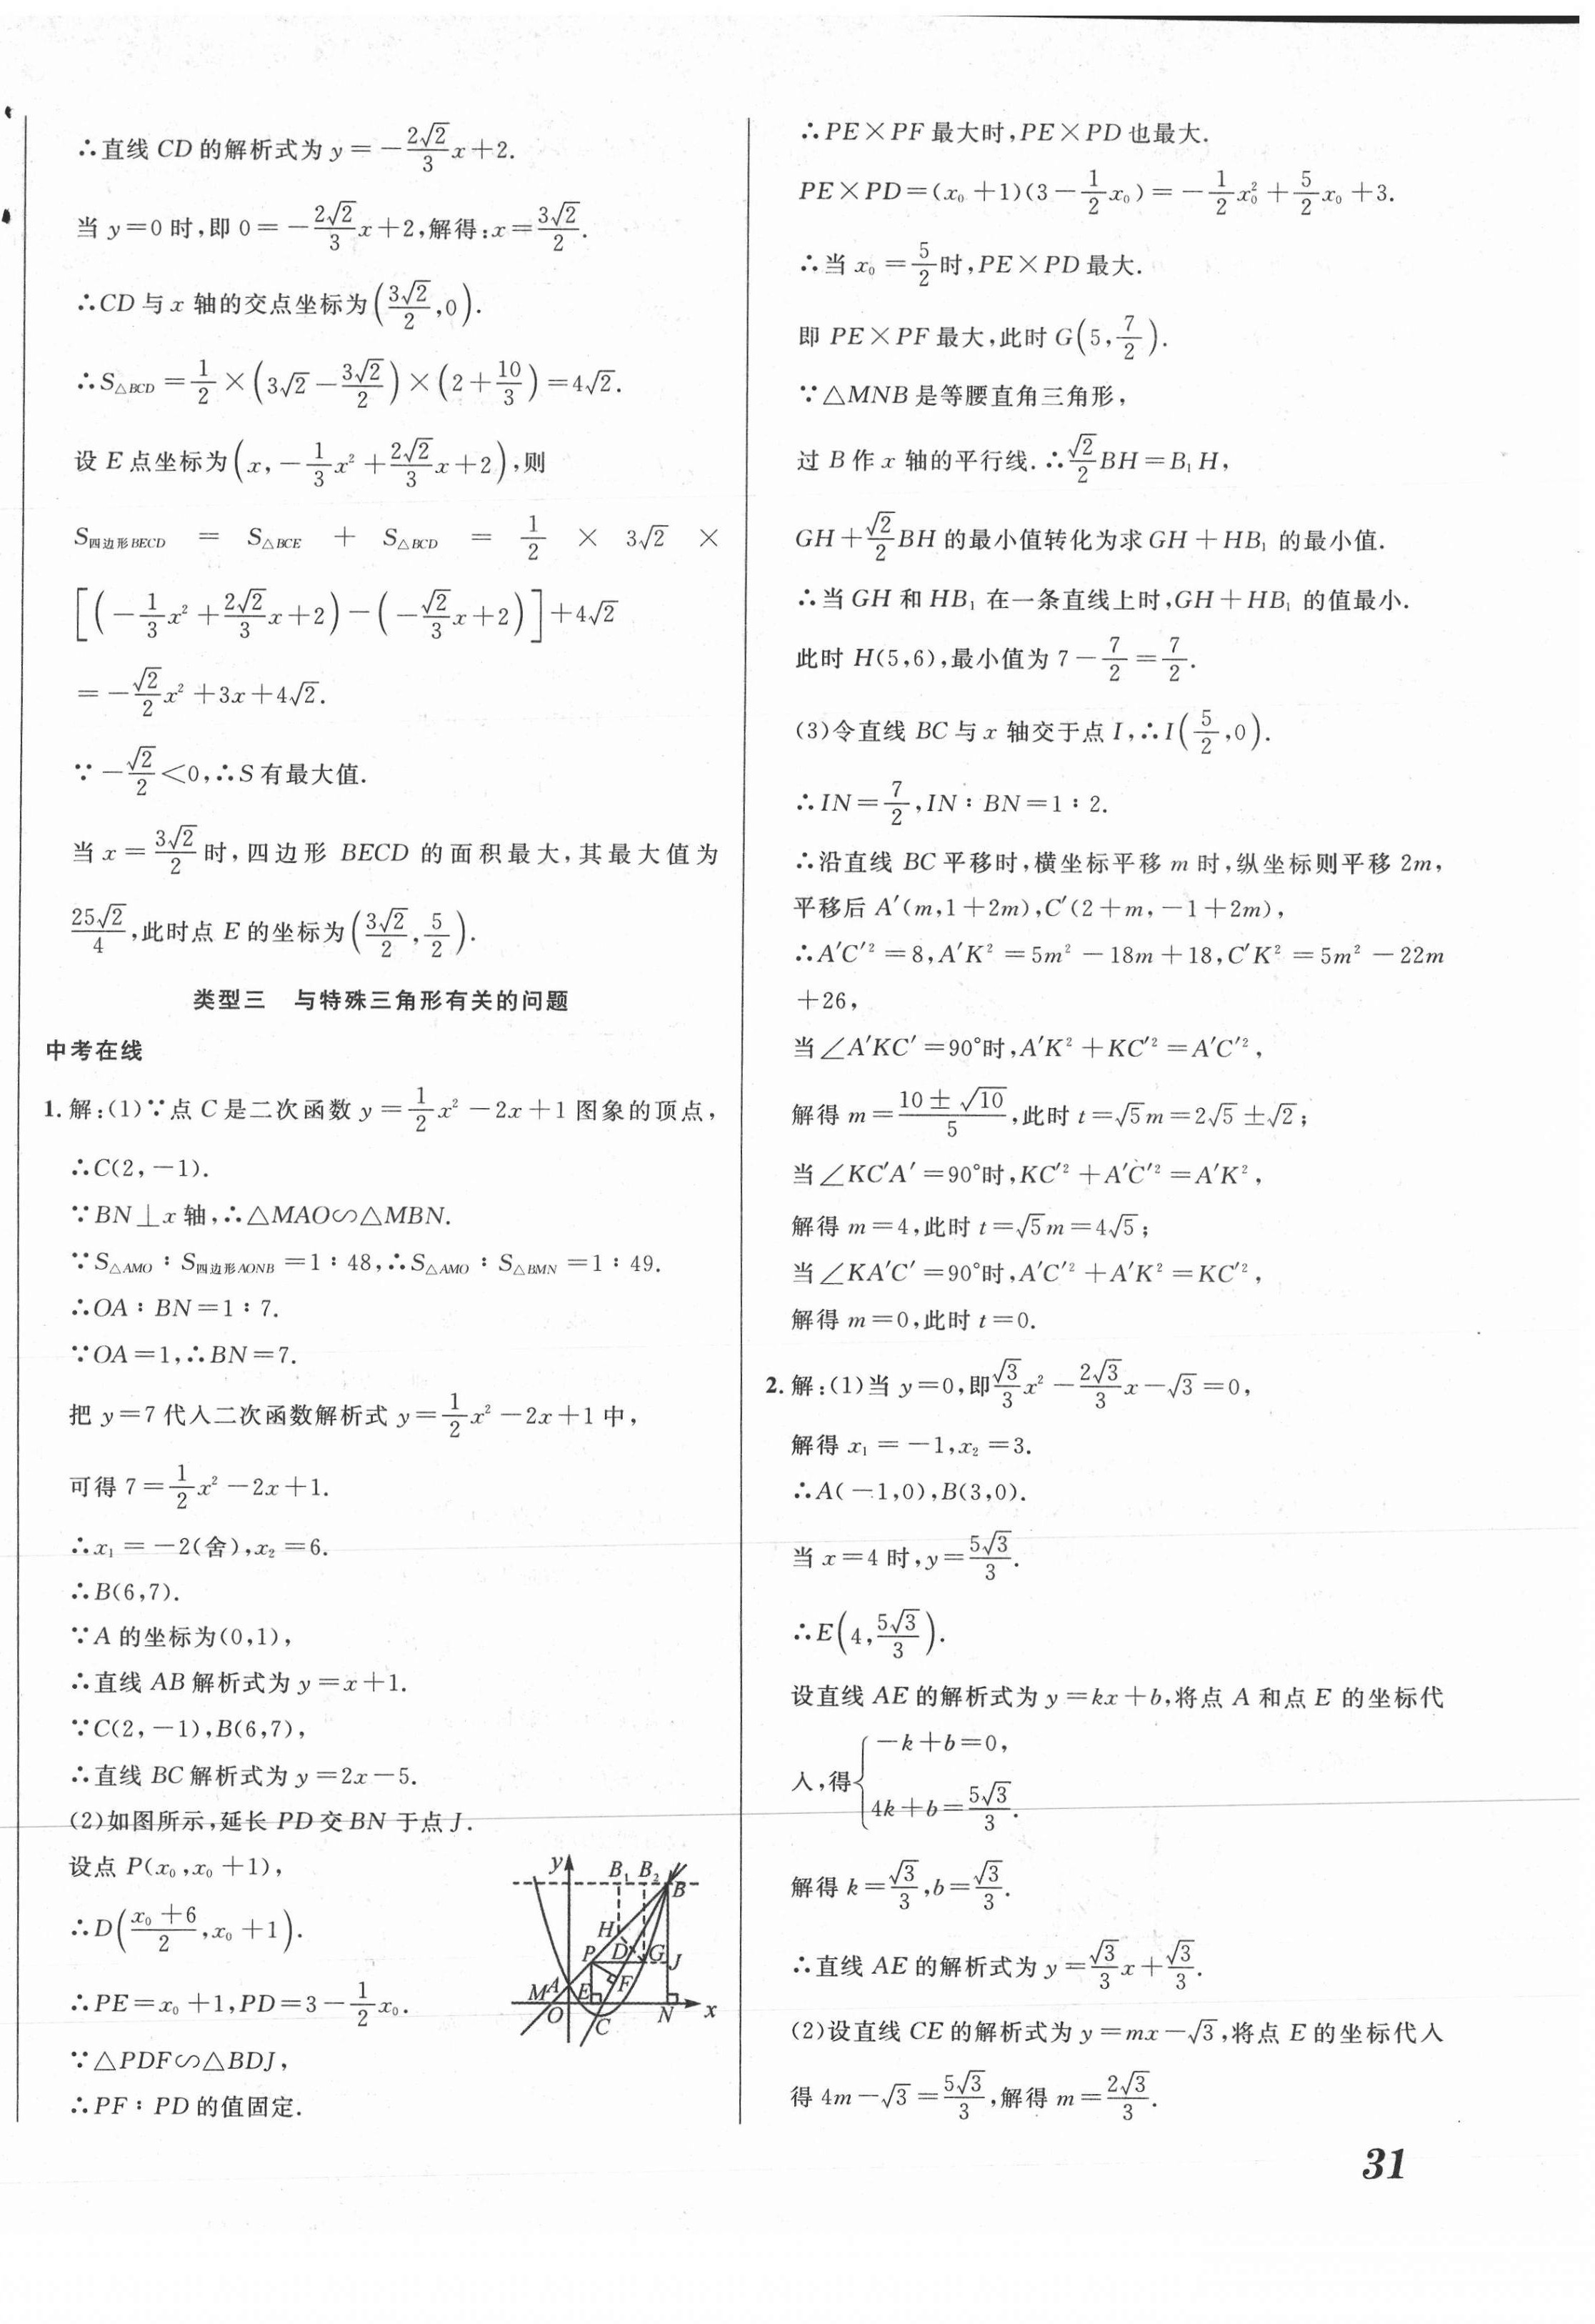 ∴直线 CD 的解析式为 y=-\frac{2√2}{3}x+2.
当 y=0 时,即 0=-\frac{2√2}{3}x+2,解得:x=\frac{3√2}{2}.
∴CD 与 x 轴的交点坐标为(\frac{3√2}{2},0).
∴S△BCD=\frac{1}{2}×(3√2-\frac{3√2}{2})×(2+\frac{10}{3})=4√2.
设 E 点坐标为(x,-\frac{1}{3}x²+\frac{2√2}{3}x+2),则
S四边形BECD = S△BCE + S△BCD = \frac{1}{2} × 3√2 ×
[(-\frac{1}{3}x²+\frac{2√2}{3}x+2)-(-\frac{√2}{3}x+2)]+4√2
=-\frac{√2}{2}x²+3x+4√2.
∵-\frac{√2}{2}<0,∴S 有最大值.
当 x=\frac{3√2}{2}时,四边形 BECD 的面积最大,其最大值为
\frac{25√2}{4},此时点 E 的坐标为(\frac{3√2}{2},\frac{5}{2}).
类型三 与特殊三角形有关的问题
中考在线
1. 解:(1)∵点 C 是二次函数 y=\frac{1}{2}x²-2x+1 图象的顶点,
∴C(2,-1).
∵BN⊥x 轴,∴△MAO∽△MBN.
∵S△AMO∶S四边形AONB=1∶48,∴S△AMO∶S△BMN=1∶49.
∴OA∶BN=1∶7.
∵OA=1,∴BN=7.
把 y=7 代入二次函数解析式 y=\frac{1}{2}x²-2x+1 中,
可得 7=\frac{1}{2}x²-2x+1.
∴x₁=-2(舍),x₂=6.
∴B(6,7).
∵A 的坐标为(0,1),
∴直线 AB 解析式为 y=x+1.
∵C(2,-1),B(6,7),
∴直线 BC 解析式为 y=2x-5.
(2)如图所示,延长 PD 交 BN 于点 J.
设点 P(x₀,x₀+1),
∴D(\frac{x₀+6}{2},x₀+1).
∴PE=x₀+1,PD=3-\frac{1}{2}x₀.
∵△PDF∽△BDJ,
∴PF∶PD 的值固定.
y B₁ B₂ B
H
P D G J
M A E F
O C N x
∴PE×PF 最大时,PE×PD 也最大.
PE×PD=(x₀+1)(3-\frac{1}{2}x₀)=-\frac{1}{2}x₀²+\frac{5}{2}x₀+3.
∴当 x₀=\frac{5}{2}时,PE×PD 最大.
即 PE×PF 最大,此时 G(5,\frac{7}{2}).
∵△MNB 是等腰直角三角形,
过 B 作 x 轴的平行线.∴\frac{√2}{2}BH=B₁H,
GH+\frac{√2}{2}BH 的最小值转化为求 GH+HB₁ 的最小值.
∴当 GH 和 HB₁ 在一条直线上时,GH+HB₁ 的值最小.
此时 H(5,6),最小值为 7-\frac{7}{2}=\frac{7}{2}.
(3)令直线 BC 与 x 轴交于点 I,∴I(\frac{5}{2},0).
∴IN=\frac{7}{2},IN∶BN=1∶2.
∴沿直线 BC 平移时,横坐标平移 m 时,纵坐标则平移 2m,
平移后 A′(m,1+2m),C′(2+m,-1+2m),
∴A′C′²=8,A′K²=5m²-18m+18,C′K²=5m²-22m
+26,
当∠A′KC′=90°时,A′K²+KC′²=A′C′²,
解得 m=\frac{10±√10}{5},此时 t=√5m=2√5±√2;
当∠KC′A′=90°时,KC′²+A′C′²=A′K²,
解得 m=4,此时 t=√5m=4√5;
当∠KA′C′=90°时,A′C′²+A′K²=KC′²,
解得 m=0,此时 t=0.
2. 解:(1)当 y=0,即\frac{√3}{3}x²-\frac{2√3}{3}x-√3=0,
解得 x₁=-1,x₂=3.
∴A(-1,0),B(3,0).
当 x=4 时,y=\frac{5√3}{3}.
∴E(4,\frac{5√3}{3}).
设直线 AE 的解析式为 y=kx+b,将点 A 和点 E 的坐标代
入,得{-k+b=0,
4k+b=\frac{5√3}{3}.
解得 k=\frac{√3}{3},b=\frac{√3}{3}.
∴直线 AE 的解析式为 y=\frac{√3}{3}x+\frac{√3}{3}.
(2)设直线 CE 的解析式为 y=mx-√3,将点 E 的坐标代入
得 4m-√3=\frac{5√3}{3},解得 m=\frac{2√3}{3}.
31